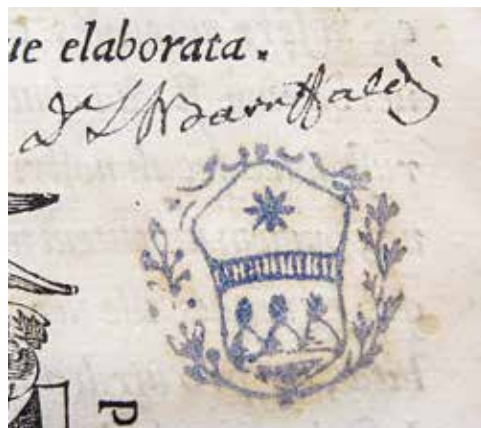 ue elaborata.
Baruffaldi
P